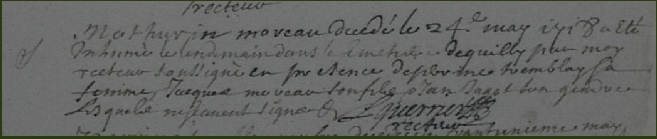 recteur
Mathurin moreau decedé le 24e may 1718 a eté
Inhumé le lendemain dans le Cimetiere de quilly par moy
recteur soussigné en presence de perrine tremblay sa
femme Jacques moreau son fils Jan Jagot son gendre
Lesquels ne signent signé
recteur
may